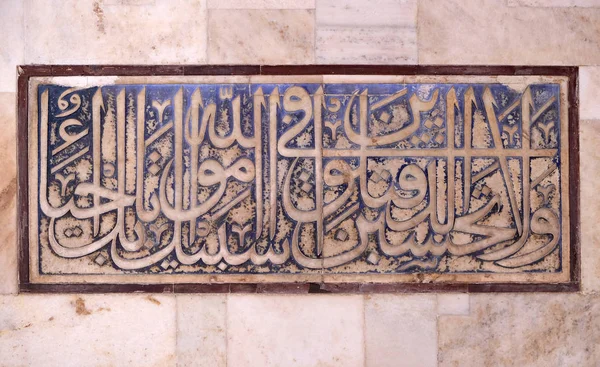 ولا تحسبن الذين قتلوا في سبيل الله أمواتا بل أحياء